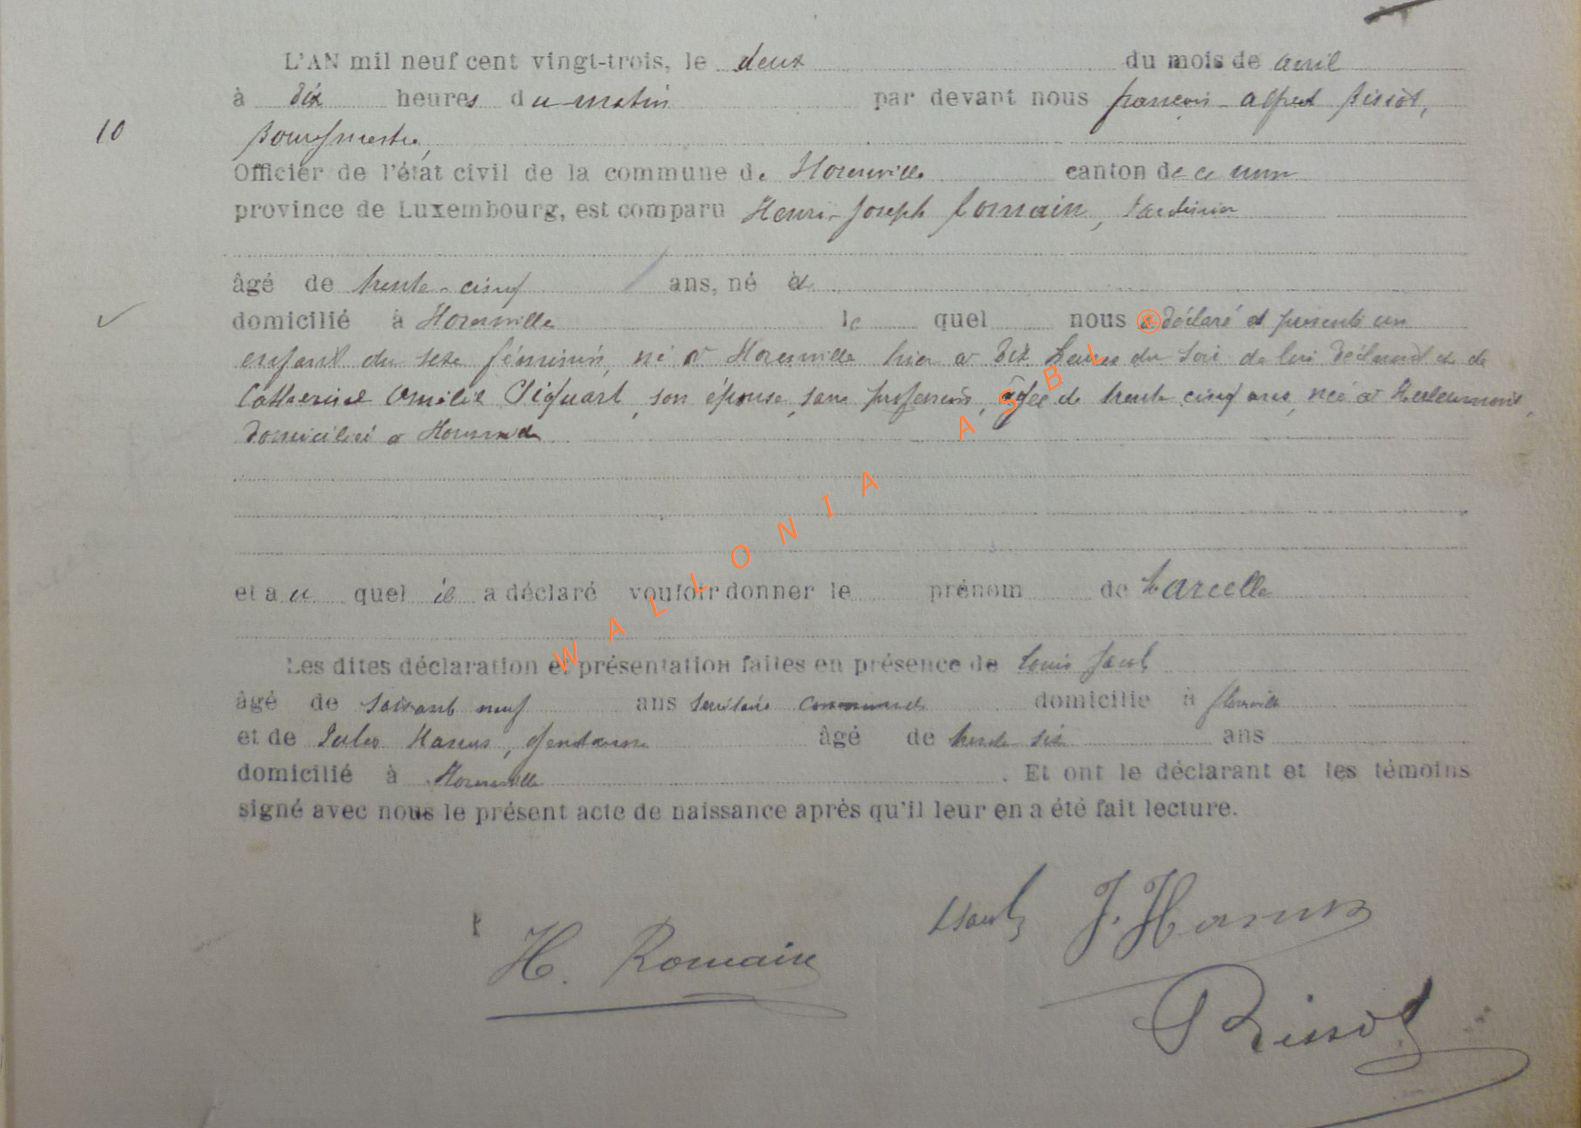 L'AN mil neuf cent vingt-trois, le deux du mois de avril
à dix heures du matin par devant nous françois-alfred Bissot,
10
Bourgmestre,
Officier de l'état civil de la commune de canton de
province de Luxembourg, est comparu Henri-Joseph Romain, Jardinier
âgé de trente-cinq ans, né à
domicilié à le quel nous a déclaré et présenté un
enfant du sexe féminin, né à hier à dix heures du soir de lui déclarant et de
Catherine Amélie son épouse, sans profession, âgée de trente cinq ans, née à
domiciliée à
et au quel il a déclaré vouloir donner le prénom de Marcelle
Les dites déclaration et présentation faites en présence de Louis Jacob
âgé de soixante neuf ans secrétaire communal domicilié à
et de Jules Hanus, gendarme âgé de trente six ans
domicilié à . Et ont le déclarant et les témoins
signé avec nous le présent acte de naissance après qu'il leur en a été fait lecture.
H. Romain J. Hanus
Bissot
WALLONIA ASBL